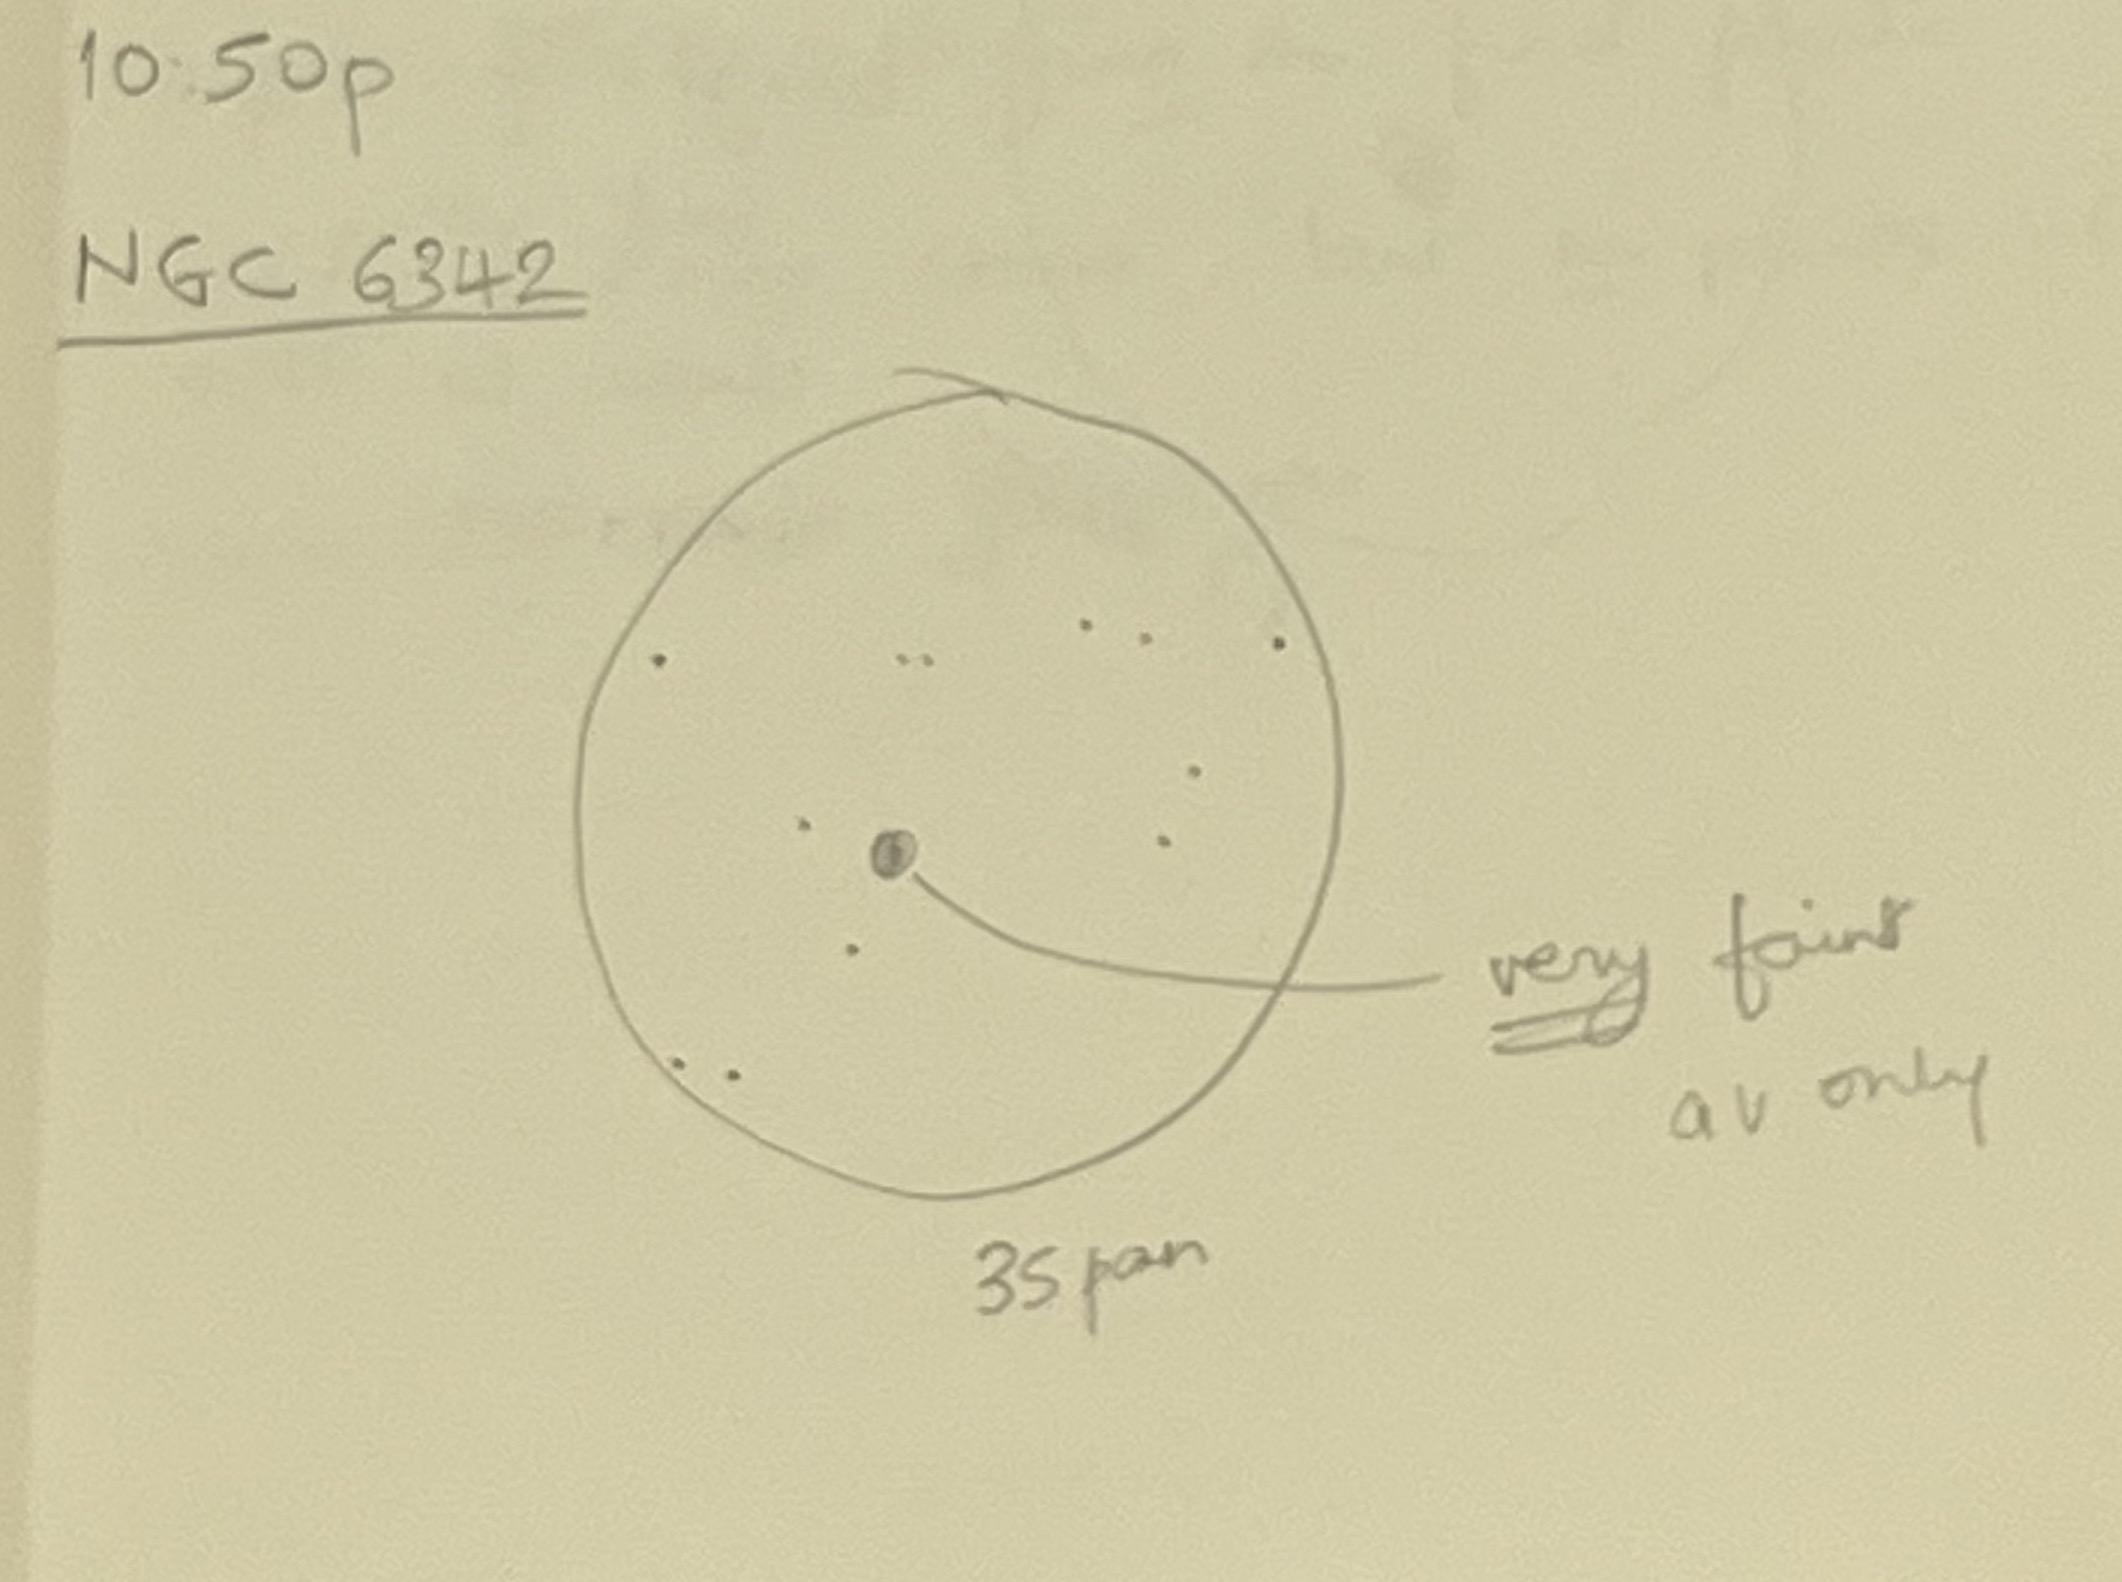 10:50p
NGC 6342
very faint
av only
35 pan